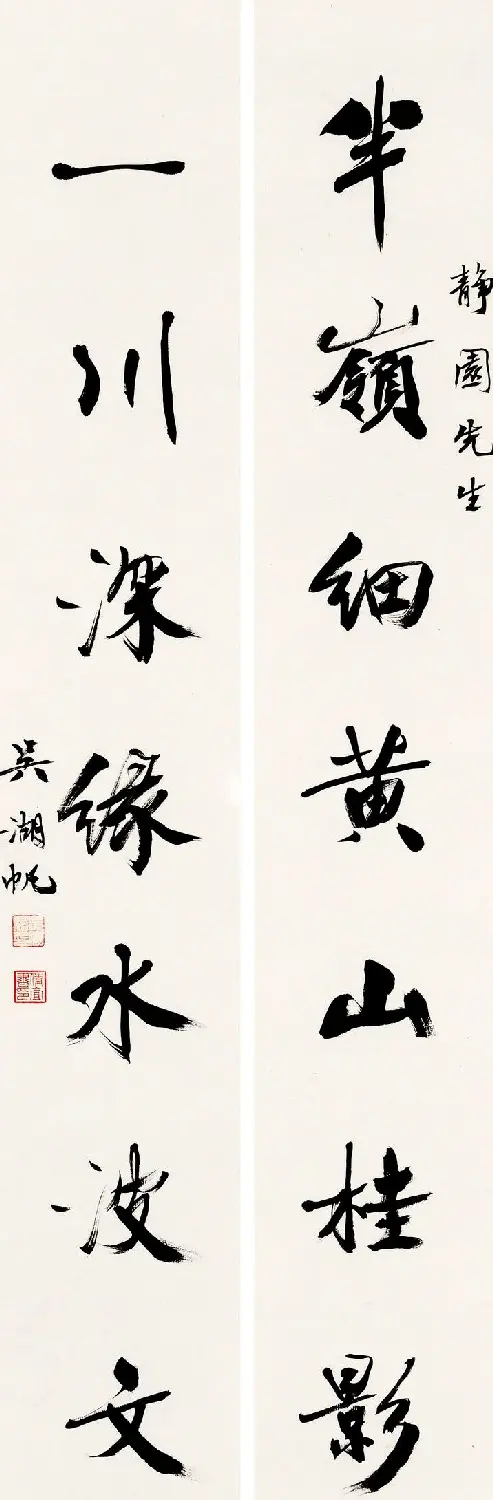 静園先生
半嶺細黄山桂影
一川深綠水波文
吴湖帆